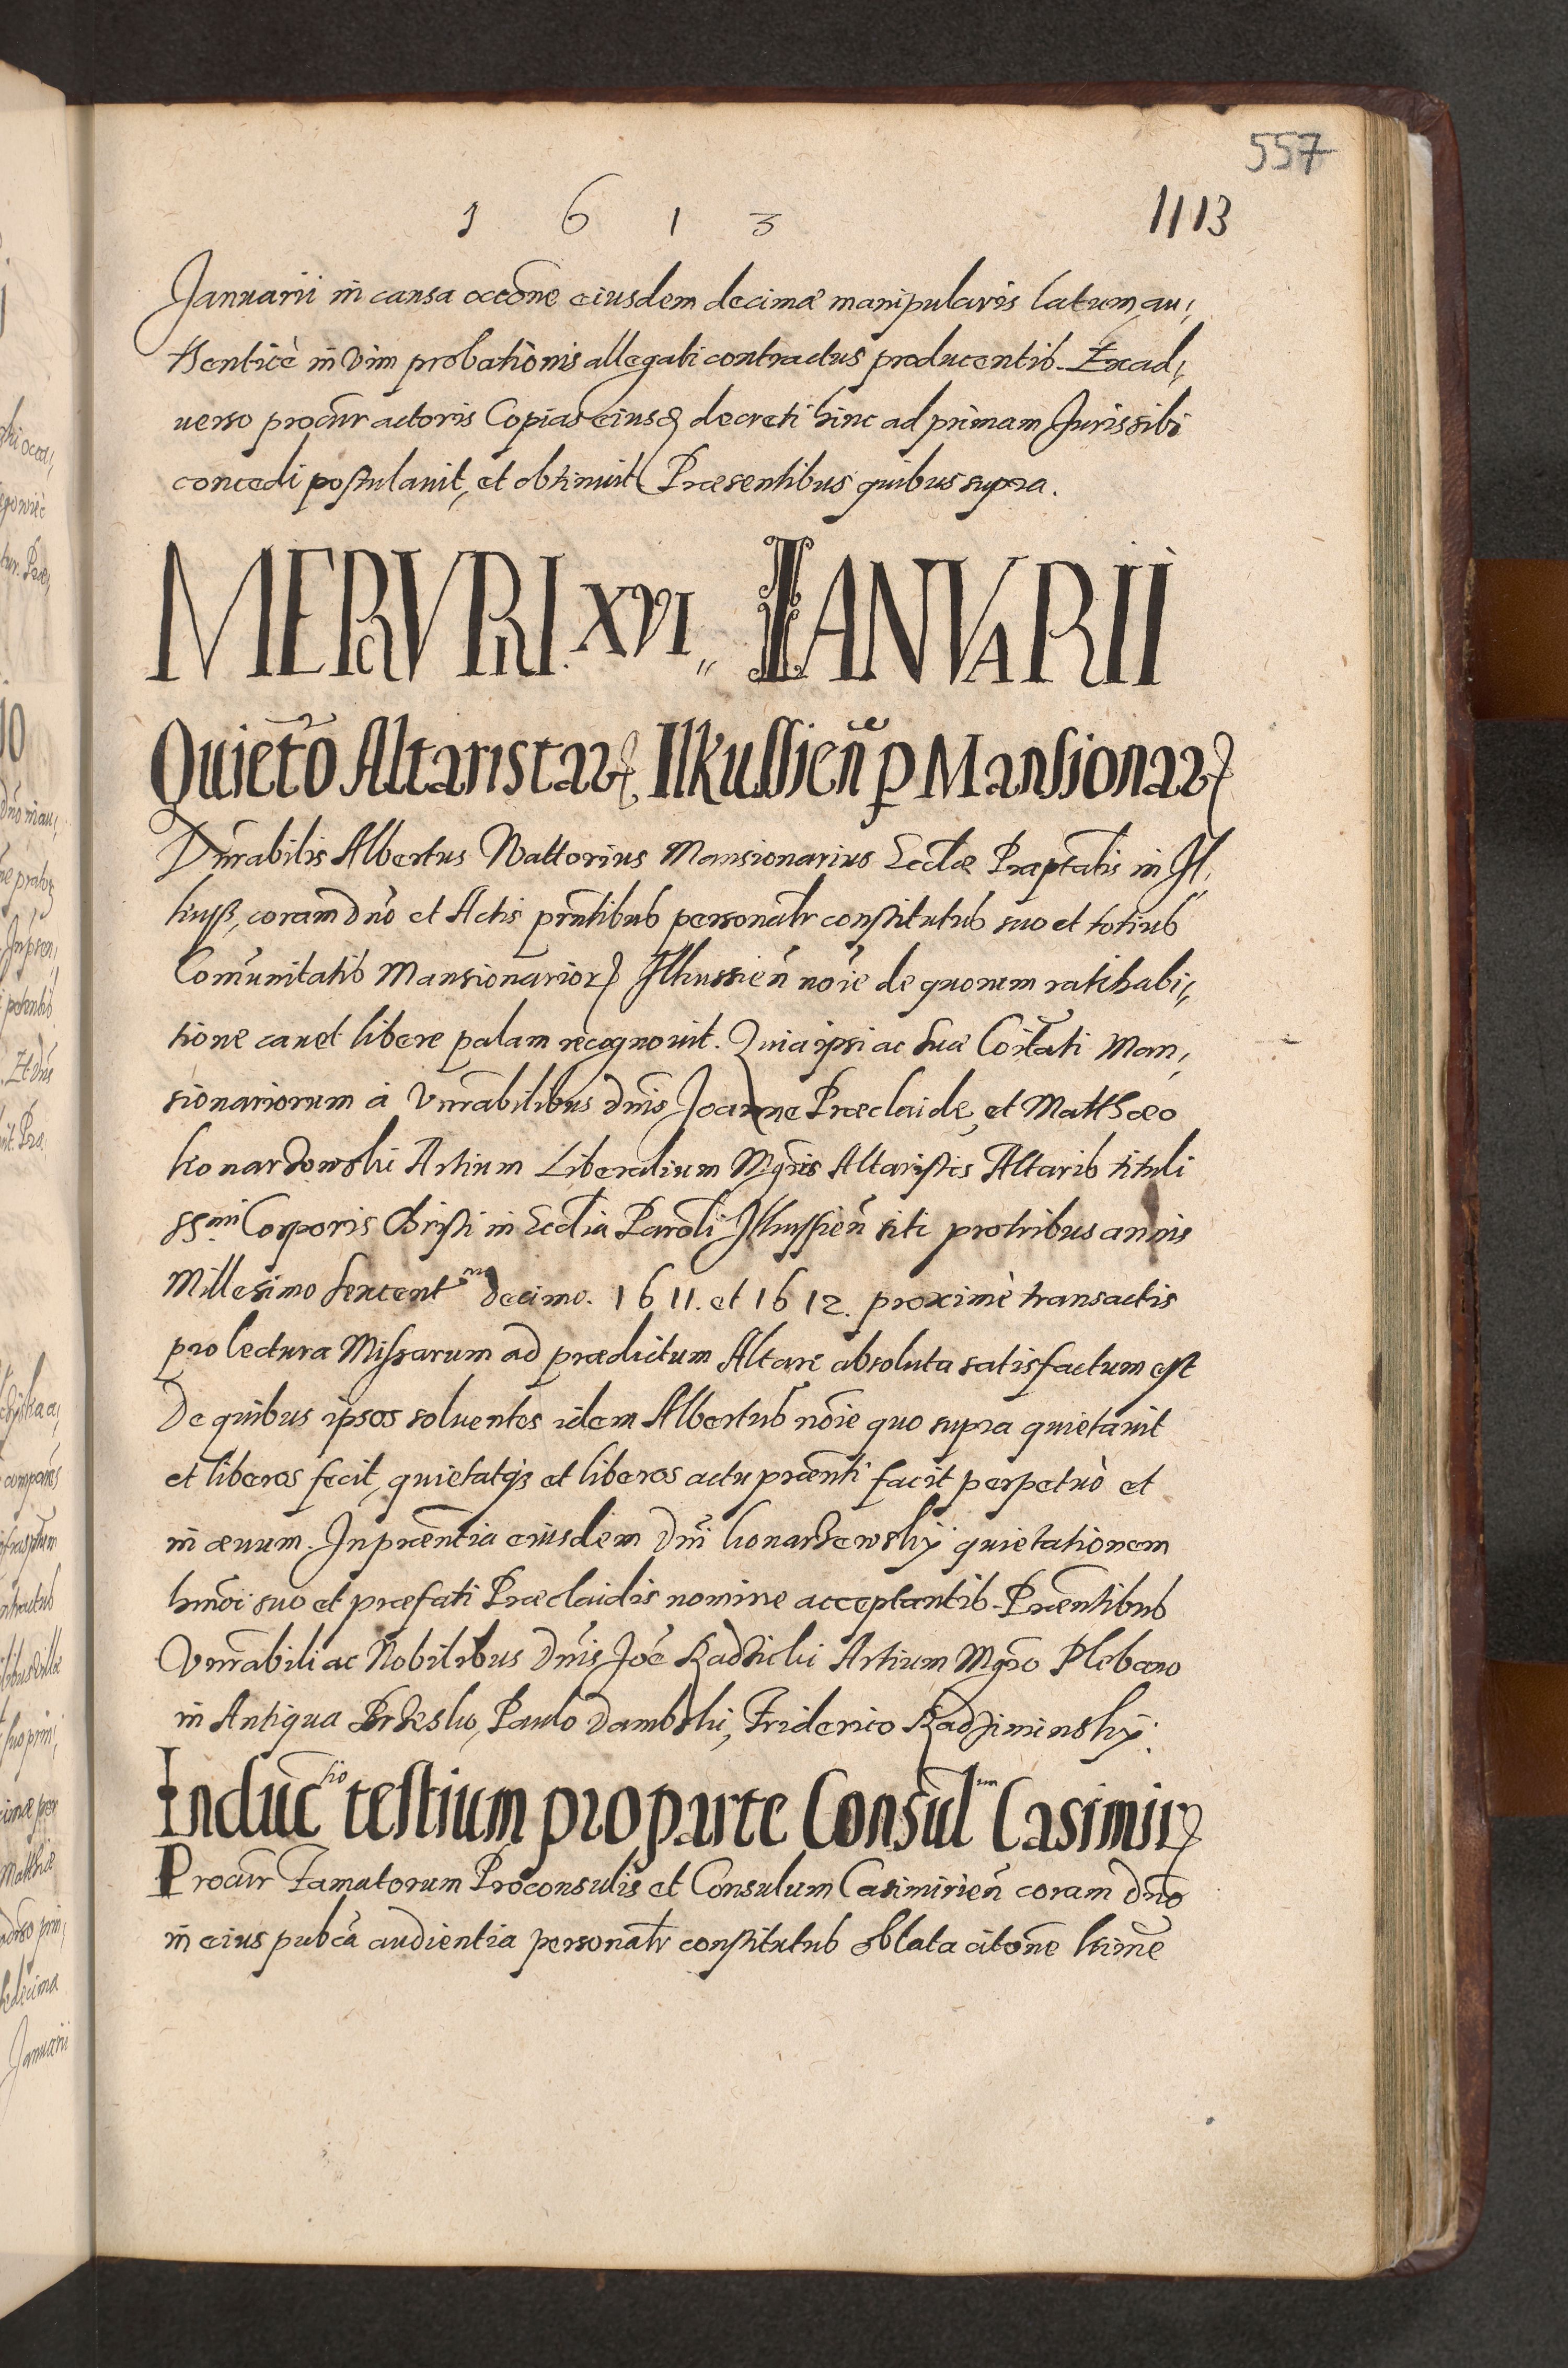 557
1 6 1 3
1113
Januarii in causa occõne eiusdem decimæ manipularis latum, au¦
thenticè in vim probationis allegati contractus producentis. Ex ad¦
uerso procur actoris Copias eiusd decreti hinc ad primam Juris sibi
concedi postulauit, et obtinuit Præsentibus quibus supra.
MERCVRII. XVI,, IANVARII
Quietõ Altaristar Ilkussien̄ p Mansionar
Vnrabilis Albertus Nattorius Mansionarius Ecclæ Præptalis in Il¦
kuss, coram dño et Actis pñtibus personalr constitutus suo et totius
Com̃unitatis Mansionarior Ilkussien̄ nõie de quorum ratihabi¦
tione cauet libere palam recognouit. Quia ipsi ac suæ Coitati Man¦
sionariorum à Vnrabilibus dnis Joanne Præclaide, et Matthæo
konardowski Artium Liberalium Mgris Altaristis Altaris tituli
SSmi Corporis Christi in Ecclia Paroli Ilkussien̄ siti pro tribus annis
Millesimo sexcentmo decimo. 1611. et 1612. proximè transactis
pro lectura Missarum ad prædictum Altare absoluta satisfactum est
De quibus ipsos soluentes idem Albertus nõie quo supra quietauit
et liberos fecit, quietatqȝ et liberos actu præñti facit perpetuò et
in æuum. In præñtia eiusdem Dni konarzewskÿ quietationem
hmõi suo et præfati Præclaidis nomine acceptantis. Præñtibus
Vnrabili ac Nobilibus Dnis Joẽ Radzicki Artium Mgro Plebano
in Antiqua Brzesko, Paulo Dambski, Friderico Radziminskÿ.
Inductio testium pro parte Consulum Casimir
Procur Famatorum Proconsulis et Consulum Casimirien̄ coram dño
in eius pub̃ca audientia personalr constitutus oblata citõne